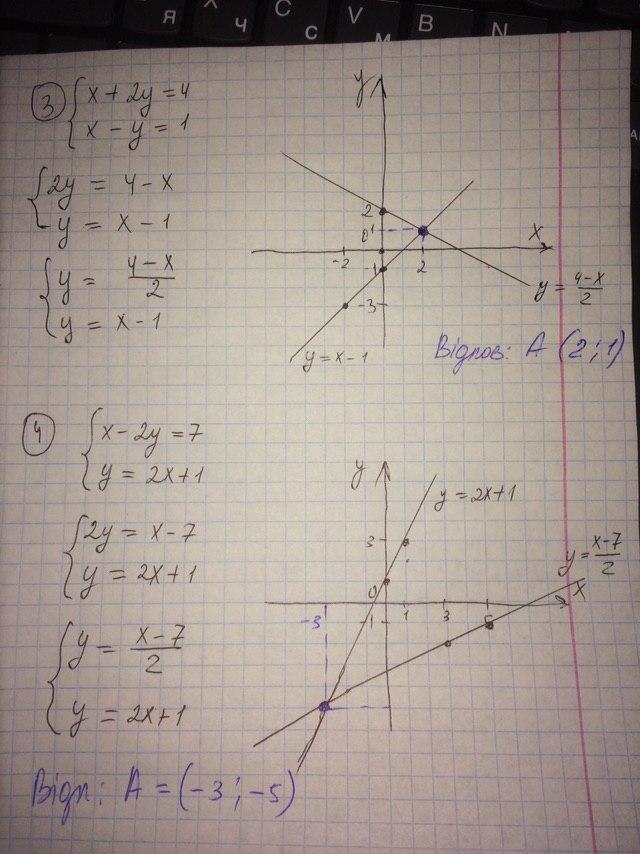 Я Ч С V B N
С М
3 { x + 2y = 4
x - y = 1
{ 2y = 4 - x
y = x - 1
{ y = (4-x)/2
y = x - 1
y
2
0 1
x
-2 -1 2
-3
y = (4-x)/2
y = x - 1
Відпов: A (2; 1)
4 { x - 2y = 7
y = 2x + 1
{ 2y = x - 7
y = 2x + 1
{ y = (x-7)/2
y = 2x + 1
y
y = 2x+1
3
y = (x-7)/2
0
x
-3 -1 1 3 5
Відп: A = (-3; -5)